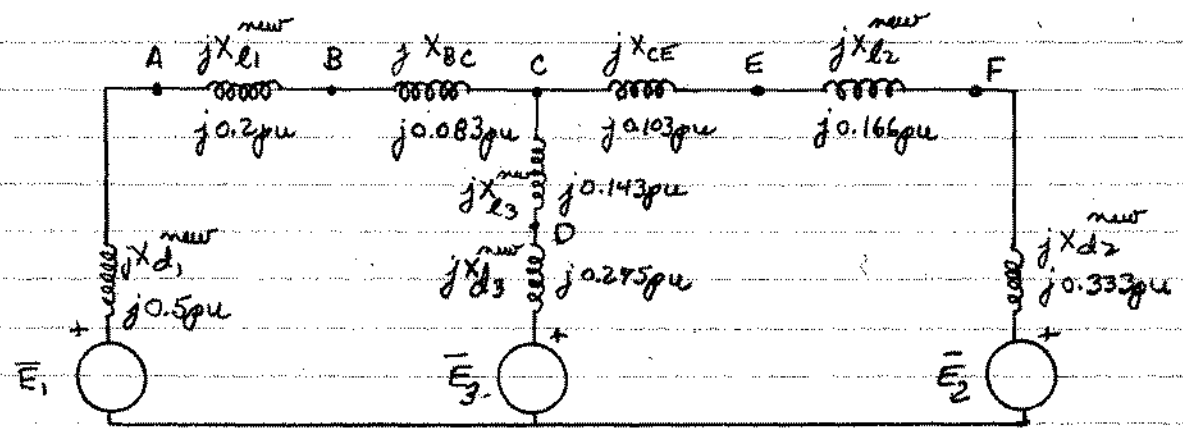 A jX_l1^new B jX_BC C jX_CE E jX_l2^new F
j0.2pu j0.083pu j0.103pu j0.166pu
jX_l3^new j0.143pu
D
jX_d1^new jX_d3^new j0.275pu jX_d2^new
j0.5pu j0.333pu
+ + +
Ē₁ Ē₃. Ē₂